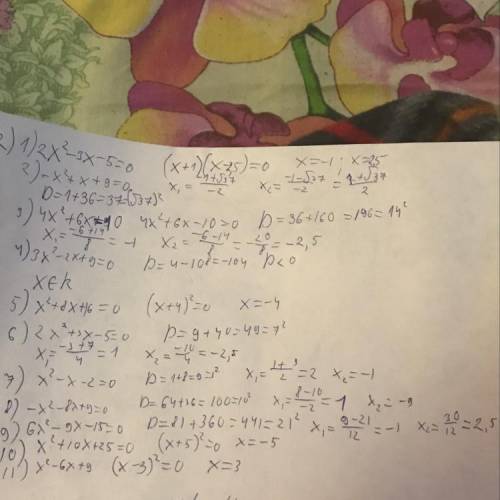 2) 1) 2x²-3x-5=0 (x+1)(x-2,5)=0 x=-1; x=2,5
2) -x²+x+9=0 x₁ = (-1+√37)/-2 x₂ = (-1-√37)/-2 = (1+√37)/2
D=1+36=37=(√37)²
3) 4x²+6x=10 4x²+6x-10=0 D=36+160=196=14²
x₁ = (-6+14)/8 = -1 x₂ = (-6-14)/8 = -20/8 = -2,5
4) 3x²-2x+9=0 D=4-108=-104 D<0
x∈R
5) x²+8x+16=0 (x+4)²=0 x=-4
6) 2x²+3x-5=0 D=9+40=49=7²
x₁ = (-3+7)/4 = 1 x₂ = -10/4 = -2,5
7) x²-x-2=0 D=1+8=9=3² x₁ = (1+3)/2 = 2 x₂=-1
8) -x²-8x+9=0 D=64+36=100=10² x₁ = (8-10)/-2 = 1 x₂=-9
9) 6x²-9x-15=0 D=81+360=441=21² x₁ = (9-21)/12 = -1 x₂ = 30/12 = 2,5
10) x²+10x+25=0 (x+5)²=0 x=-5
11) x²-6x+9 (x-3)²=0 x=3